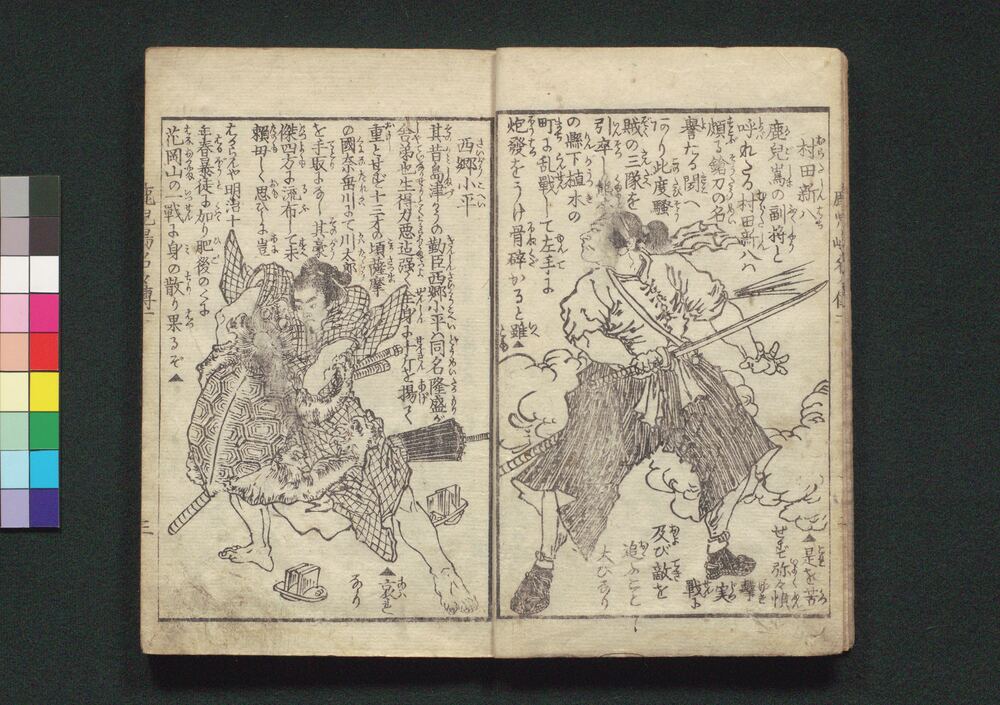 村田新八
鹿兒嶌の副將と
呼れたる村田新八ハ
頗る鎗刀の名
譽たる聞へ
ありり此度騒
賊の三隊を
引率し熊
の縣下植木の
町に乱戰して左手に
炮發をうけ骨碎かると雖▲
▲是を苦
せず弥々憤
擊
実
戰に
及び敵を
追ふこと
大ひなり
西郷小平
其昔島津の勤臣西郷小平ハ同名隆盛が
舎弟也生得力悪迄强く全身に十斤を揚るを
重しとせず十三才の頃薩摩
の國奈岳川にて川太郎
を手取にるし其豪
傑四方に流布して末
賴母しく思ひしに豈
はからんや明治十
年春暴徒に加り肥後のくに
花岡山の戰に身の散り果るぞ▲
▲哀れ
なり